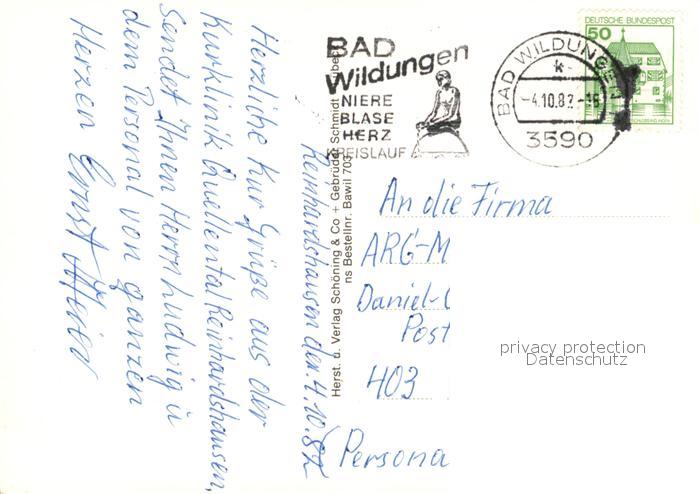 Reinhardshausen den 4.10.82
Herzliche Kur Grüße aus der
Kurklinik Quellental Reinhardshausen,
sendet Ihnen Herrn Ludwig u
dem Personal von ganzen
Herzen Ernst
Herst. u. Verlag Schöning & Co + Gebrüder Schmidt
ns Bestellnr. Bawil 703
BAD
Wildungen
NIERE
BLASE
HERZ
KREISLAUF
BAD WILDUNGEN
k
-4.10.82-18
3590
DEUTSCHE BUNDESPOST
50
An die Firma
ARG-M
Daniel-
Post
403
Persona
privacy protection
Datenschutz